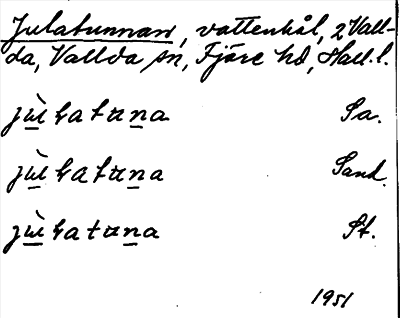 Julatunnan, vattenhål, 2 Vall-
da, Vallda sn, Fjäre hd, Hall. l.
jùlatuna Sa.
jùlatuna Sand.
jùlatuna St.
1951